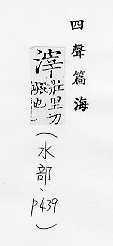 四聲篇海
滓壯里切
也
（水部、p439）